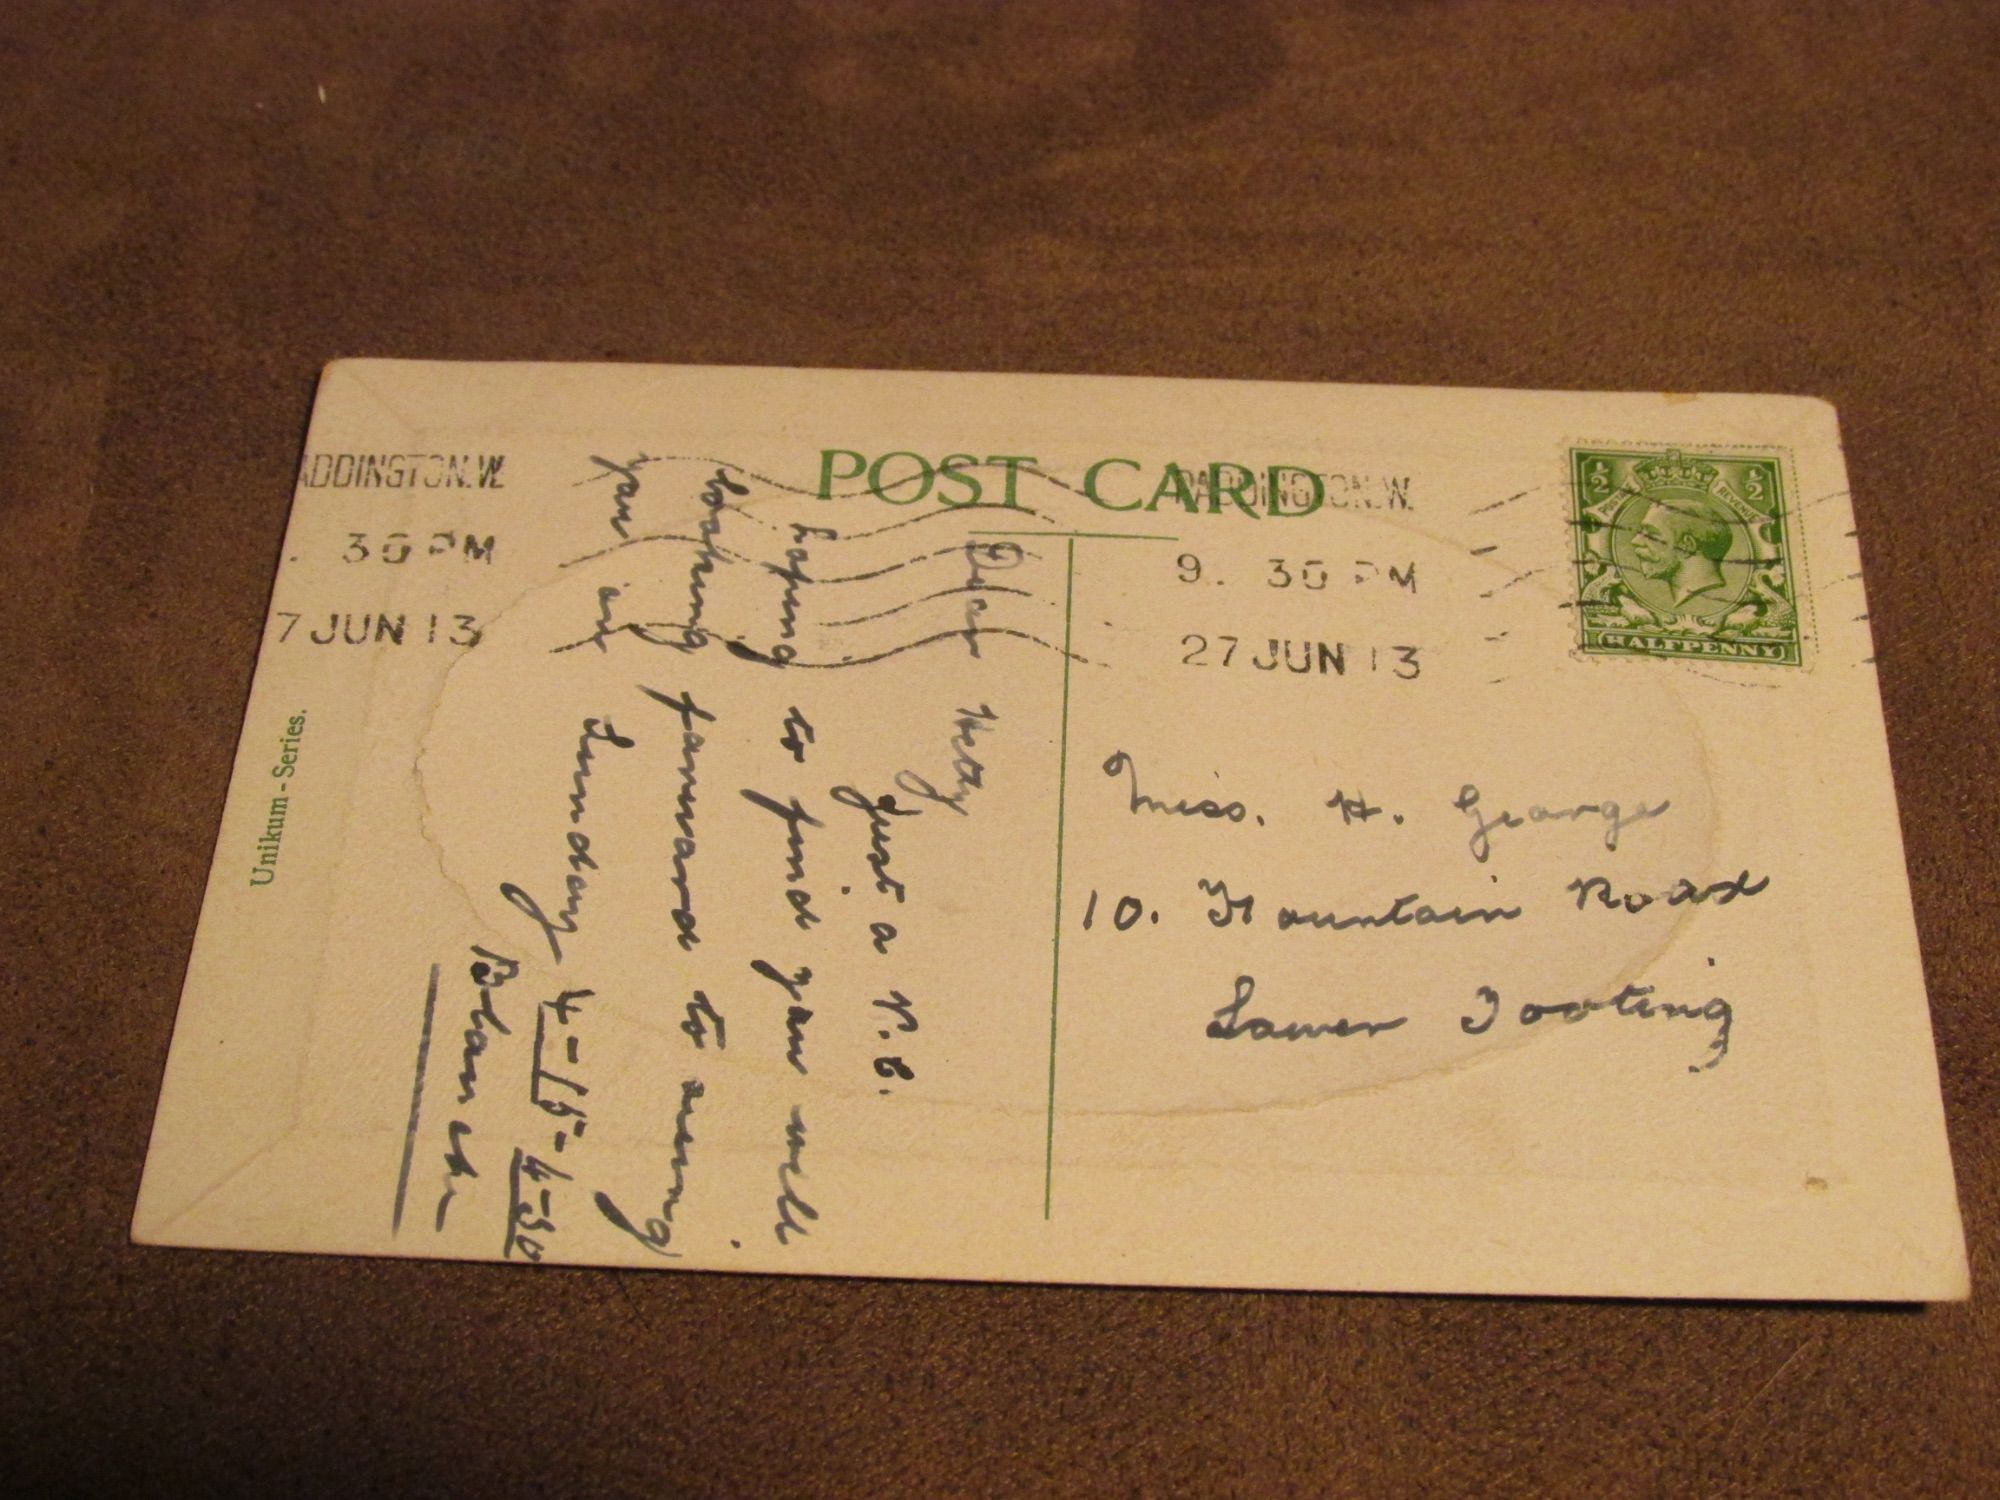 POST CARD
PADDINGTON.W.
9. 30 PM
27 JUN 13
½ ½
POSTAGE REVENUE
HALFPENNY
ADDINGTON.W.
. 30 PM
7 JUN 13
Unikum-Series.
Dear Hetty
Just a P.C.
hoping to find you well
Looking forward to seeing
you on Sunday 4-15-4-30
Blanche
Miss. H. George
10. Fountain Road
Lower Tooting